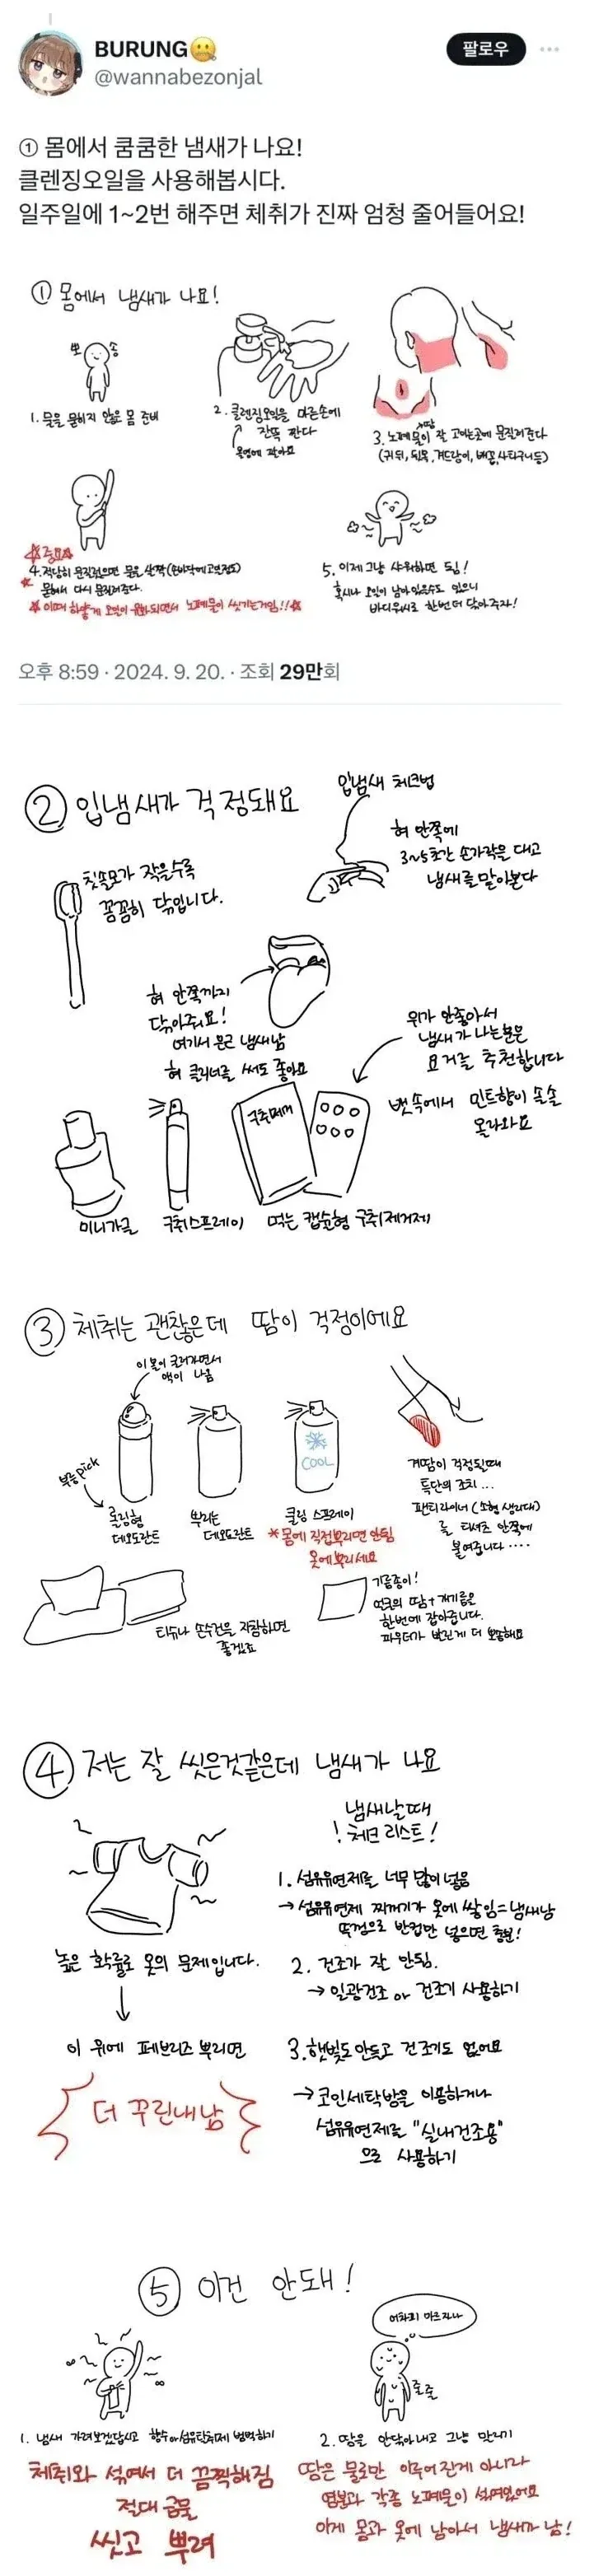 BURUNG
@wannabezonjal
팔로우
① 몸에서 쿰쿰한 냄새가 나요!
클렌징오일을 사용해봅시다.
일주일에 1~2번 해주면 체취가 진짜 엄청 줄어들어요!
① 몸에서 냄새가 나요!
뽀 송
1. 물을 묻히지 않은 몸 준비
2. 클렌징오일을 마른손에
잔뜩 짠다
3. 노폐물이 잘 고이는곳에 문질러준다
+땀
(귀뒤, 뒷목, 겨드랑이, 배꼽, 사타구니 등)
☆중요☆
4. 적당히 문질렀으면 물을 살짝(손바닥에 고일정도)
묻혀서 다시 문질러준다.
☆이때 하얗게 오일이 유화되면서 노폐물이 씻기는거임!!☆
5. 이제 그냥 샤워하면 됨!
혹시나 오일이 남아있을수도 있으니
바디워시로 한번 더 닦아주자!
오후 8:59 · 2024. 9. 20. · 조회 29만회
② 입냄새가 걱정돼요
입냄새 체크법
혀 안쪽에
3~5초간 손가락을 대고
냄새를 맡아본다
칫솔모가 작을수록
꼼꼼히 닦입니다.
혀 안쪽까지
닦아줘요!
여기서 은근 냄새남
혀 클리너를 써도 좋아요
위가 안좋아서
냄새가 나는분은
요거를 추천합니다
뱃속에서 민트향이 솔솔
올라와요
구취제거
미니가글
구취스프레이
먹는 캡슐형 구취제거제
③ 체취는 괜찮은데 땀이 걱정이에요
이 볼이 굴러가면서
액이 나옴
부농pick
롤링형
데오도란트
뿌리는
데오도란트
COOL
쿨링 스프레이
*몸에 직접뿌리면 안됨
옷에뿌리세요
겨땀이 걱정될때
특단의 조치...
팬티라이너 (소형 생리대)
를 티셔츠 안쪽에
붙여줍니다....
티슈나 손수건을 지참하면
좋겠죠
기름종이!
얼굴의 땀+개기름은
한번에 잡아줍니다.
파우더가 발린게 더 뽀송해요
④ 저는 잘 씻은것같은데 냄새가 나요
냄새날때
! 체크 리스트!
높은 확률로 옷의 문제입니다.
이 위에 페브리즈 뿌리면
더 꾸린내남
1. 섬유유연제를 너무 많이 넣음
→ 섬유유연제 찌꺼기가 옷에 쌓임=냄새남
뚜껑으로 반컵만 넣으면 충분!
2. 건조가 잘 안됨.
→ 일광건조 or 건조기 사용하기
3. 햇빛도 안들고 건조기도 없어요
→ 코인세탁방을 이용하거나
섬유유연제를 "실내건조용"
으로 사용하기
⑤ 이건 안돼!
1. 냄새 가려보겠답시고 향수or섬유탈취제 범벅하기
체취와 섞여서 더 끔찍해짐
절대 금물
씻고 뿌려
어차피 마르자나
줄줄
2. 땀을 안닦아내고 그냥 말리기
땀은 물로만 이루어진게 아니라
염분과 각종 노폐물이 섞여있어요
이게 몸과 옷에 남아서 냄새가 남!